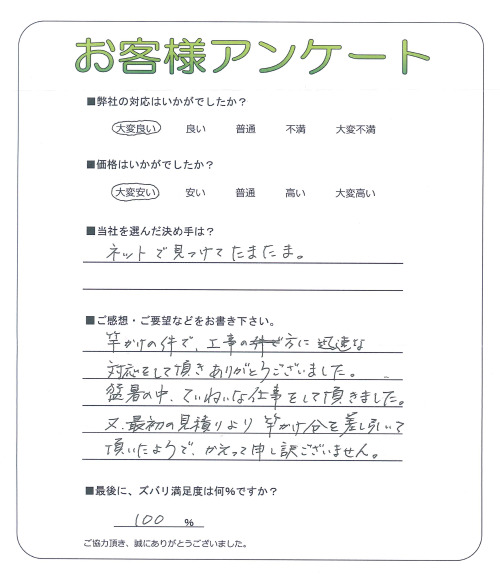 お客様アンケート
■弊社の対応はいかがでしたか？
大変良い 良い 普通 不満 大変不満
■価格はいかがでしたか？
大変安い 安い 普通 高い 大変高い
■当社を選んだ決め手は？
ネットで見つけてたまたま。
■ご感想・ご要望などをお書き下さい。
竿かけの件で、工事の方に迅速な
対応をして頂きありがとうございました。
猛暑の中、ていねいな仕事をして頂きました。
又、最初の見積りより竿かけ分を差し引いて
頂いたようで、かえって申し訳ございません。
■最後に、ズバリ満足度は何％ですか？
100 ％
ご協力頂き、誠にありがとうございました。